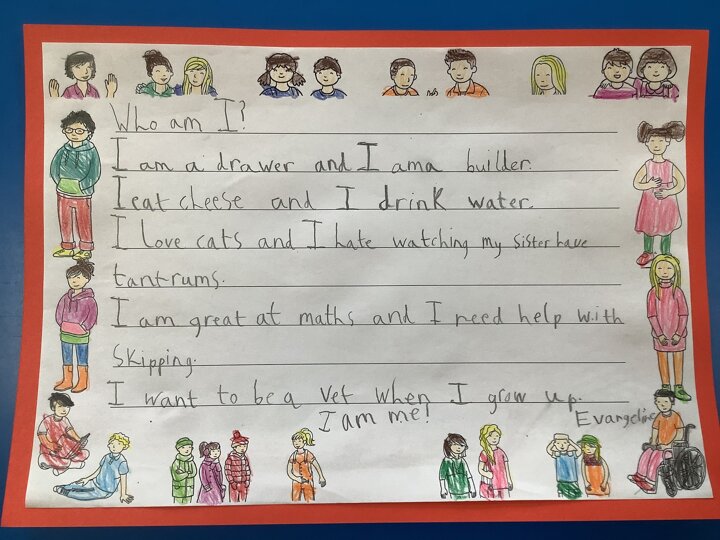 Who am I?
I am a drawer and I am a builder.
I eat cheese and I drink water.
I love cats and I hate watching my sister have
tantrums.
I am great at maths and I need help with
skipping.
I want to be a vet when I grow up.
I am me!
Evangeline